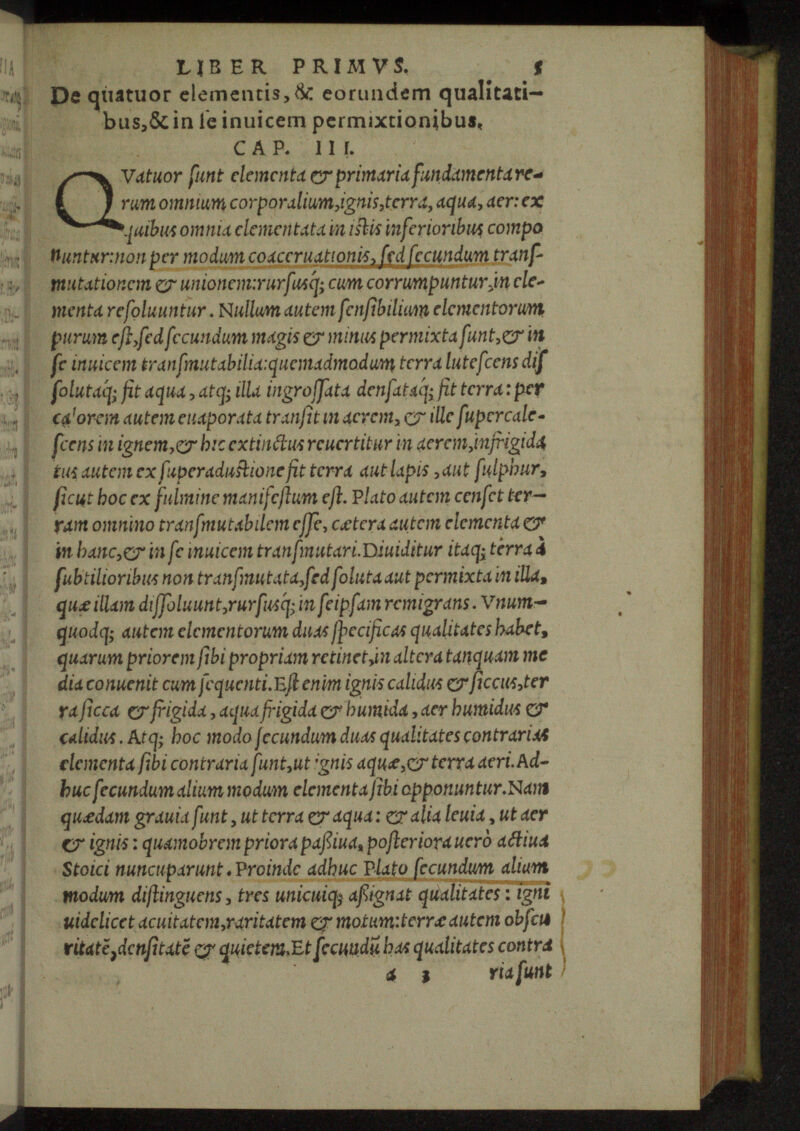 LIBER PRIMVS. 5
De quatuor elementis, & eorundem qualitati-
bus, & in se inuicem permixtionibus.
CAP. III.
QVatuor sunt elementa & primaria fundamenta re-
rum omnium corporalium, ignis, terra, aqua, aer: ex
quibus omnia elementata in istis inferioribus compo
nuntur: non per modum coaceruationis, sed secundum trans-
mutationem & unionem: rursusq; cum corrumpuntur, in ele-
menta resoluuntur. Nullum autem sensibilium elementorum
purum est, sed secundum magis & minus permixta sunt, & in
se inuicem transmutabilia: quemadmodum terra lutescens dis
solutaq; fit aqua, atq; illa ingrossata densataq; fit terra: per
calorem autem euaporata transit in aerem, & ille supercale-
scens in ignem, & hic extinctus reuertitur in aerem, infrigida
tus autem ex superadustione fit terra aut lapis, aut sulphur,
sicut hoc ex fulmine manifestum est. Plato autem censet ter-
ram omnino transmutabilem esse, cætera autem elementa &
in hanc, & in se inuicem transmutari. Diuiditur itaq; terra à
subtilioribus non transmutata, sed soluta aut permixta in illa,
quæ illam dissoluunt, rursusq; in seipsam remigrans. Vnum-
quodq; autem elementorum duas specificas qualitates habet,
quarum priorem sibi propriam retinet, in altera tanquam me
dia conuenit cum sequenti. Est enim ignis calidus & siccus, ter
ra sicca & frigida, aqua frigida & humida, aer humidus &
calidus. Atq; hoc modo secundum duas qualitates contrarias
elementa sibi contraria sunt, ut ignis aquæ, & terra aeri. Ad-
huc secundum alium modum elementa sibi opponuntur. Nam
quædam grauia sunt, ut terra & aqua: & alia leuia, ut aer
& ignis: quamobrem priora passiua, posteriora uerò actiua
Stoici nuncuparunt. Proinde adhuc Plato secundum alium
modum distinguens, tres unicuiq; assignat qualitates: igni
uidelicet acuitatem, raritatem & motum: terræ autem obscu
ritatē, densitatē & quietem. Et secundū has qualitates contra
a 3 ria sunt